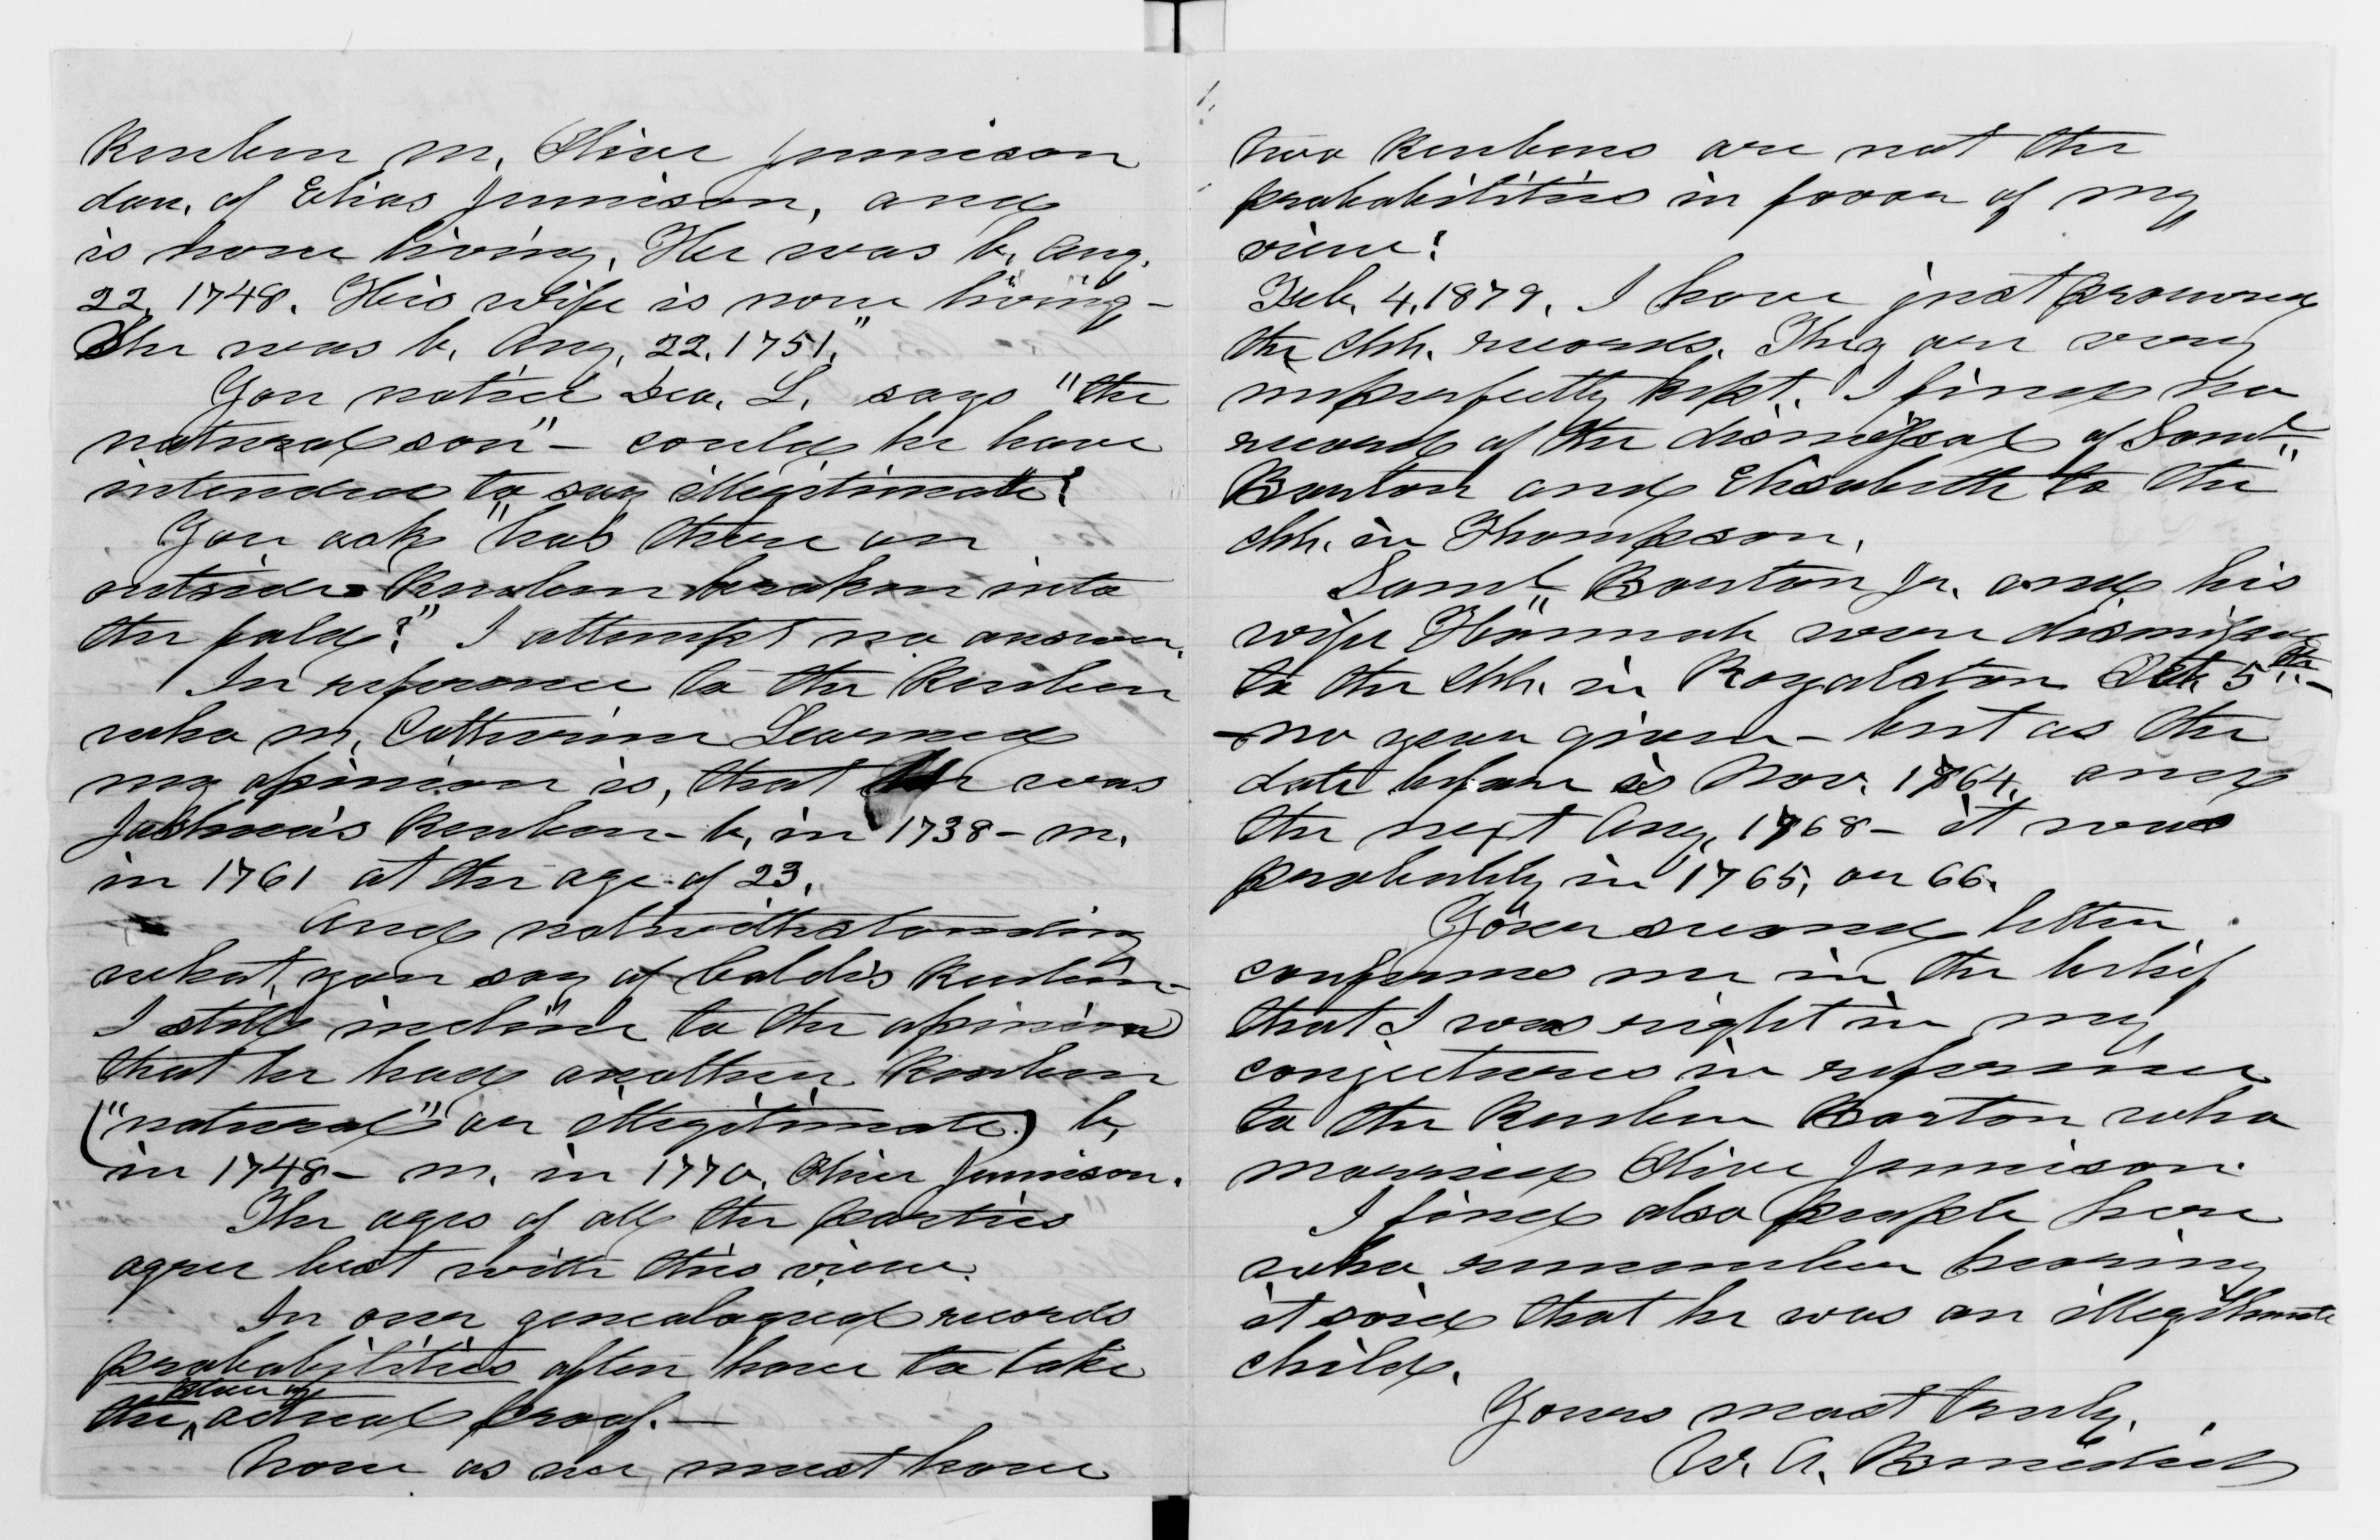 Reuben m. Olive Jennison
dau. of Elias Jennison, and
is now living. He was b. Aug.
22, 1748. His wife is now living -
She was b. Aug. 22. 1751."
You notice Dea. L. says "the
natural son" - could he have
intended to say illegitimate?
You ask "has there an
outside Reuben broken into
the fold?" I attempt no answer.
In reference to the Reuben
who m. Catherine Learned
my opinion is, that he was
Joshua's Reuben - b. in 1738 - m.
in 1761 at the age of 23.
And notwithstanding
what you say of Caleb's Reuben -
I still incline to the opinion
that he had another Reuben
("natural" or illegitimate) b.
in 1748 - m. in 1770, Olive Jennison.
The ages of all the parties
agree best with this view.
In our genealogical records
probabilities often have to take
the place of actual proof. -
Now as we must have
two Reubens are not the
probabilities in favor of my
view?
Feb. 4, 1879. I have just procured
the Chh. records. They are very
imperfectly kept. I find no
record of the dismissal of Saml.
Barton and Elisabeth to the
Chh. in Thompson.
Saml. Barton Jr. and his
wife Hannah were dismissed
to the Chh. in Royalston Oct. 5th. -
- no year given - but as the
date before is Nov. 1764, and
the next Aug. 1768 - it was
probably in 1765, or 66.
Your second letter
confirms me in the belief
that I was right in my
conjectures in reference
to the Reuben Barton who
married Olive Jennison.
I find also people here
who remember hearing
it said that he was an illegitimate
child.
Yours most truly,
W. A. Benedict